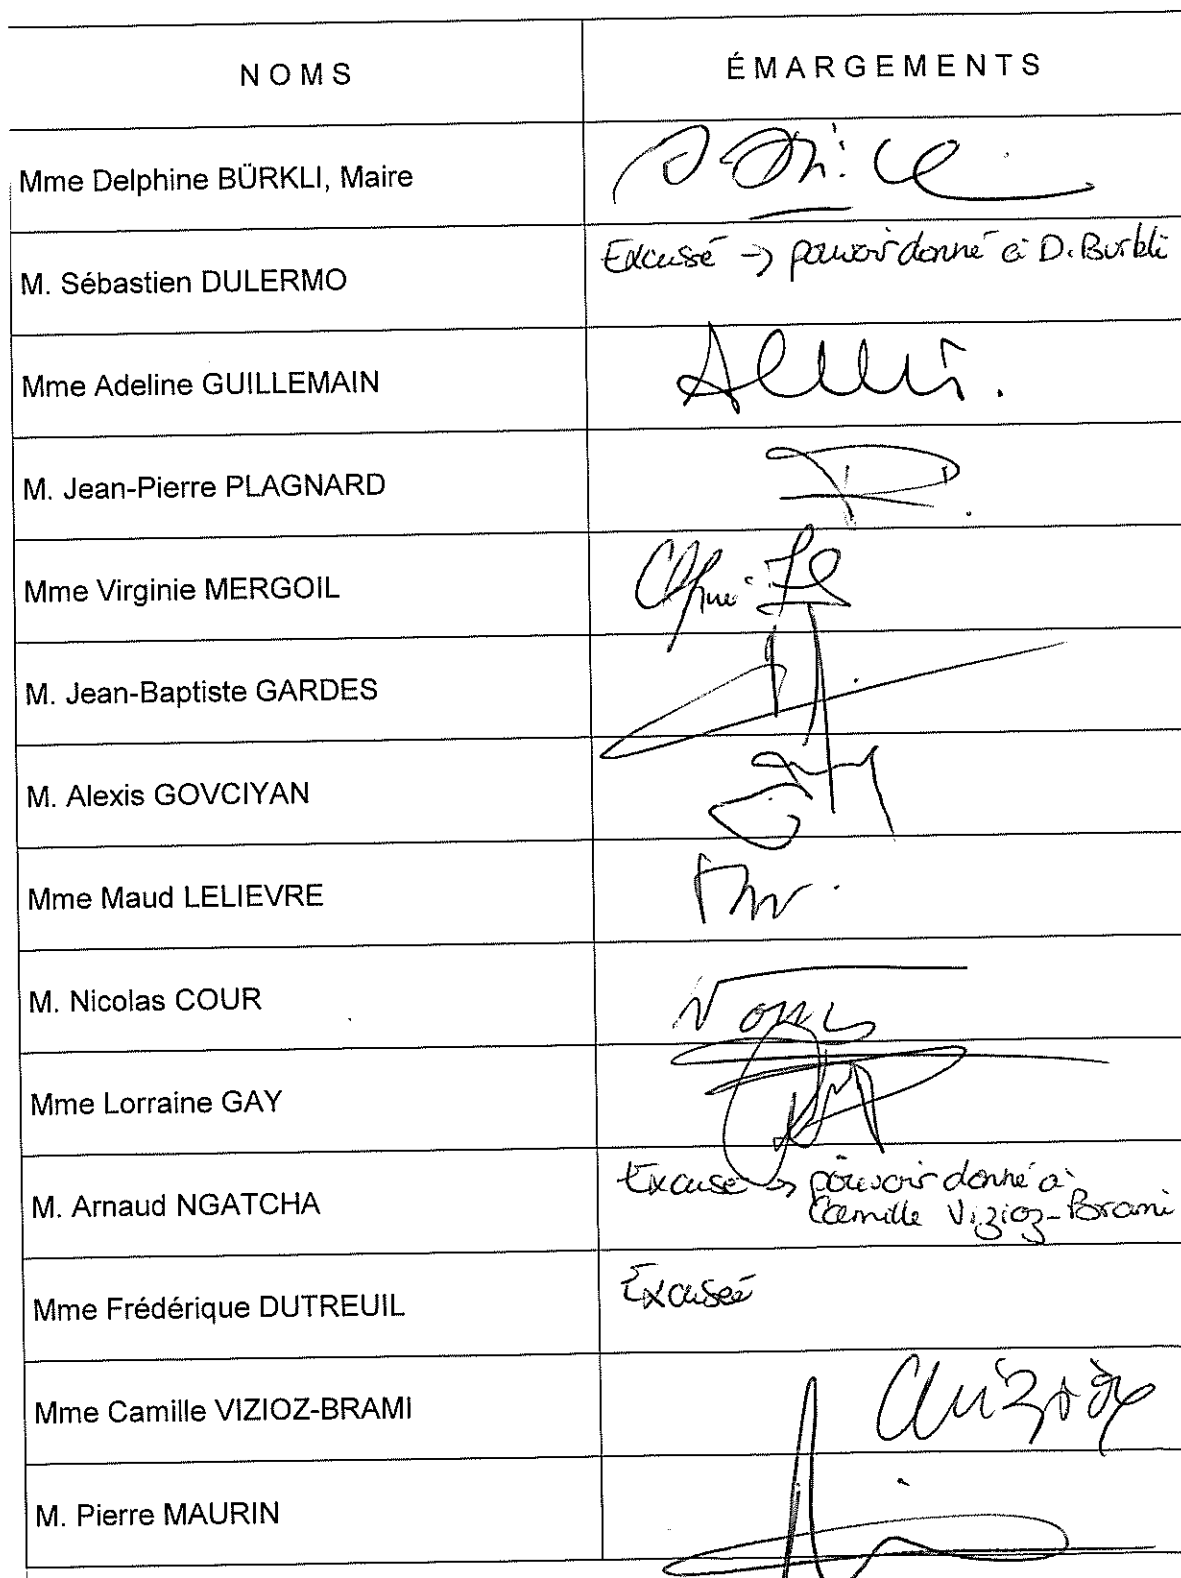 NOMS
ÉMARGEMENTS
Mme Delphine BÜRKLI, Maire
M. Sébastien DULERMO
Excusé -> pouvoir donné à D. Burkli
Mme Adeline GUILLEMAIN
M. Jean-Pierre PLAGNARD
Mme Virginie MERGOIL
M. Jean-Baptiste GARDES
M. Alexis GOVCIYAN
Mme Maud LELIEVRE
M. Nicolas COUR
Mme Lorraine GAY
M. Arnaud NGATCHA
Excusé -> pouvoir donné à
Camille Vizioz-Brami
Mme Frédérique DUTREUIL
Excusée
Mme Camille VIZIOZ-BRAMI
M. Pierre MAURIN